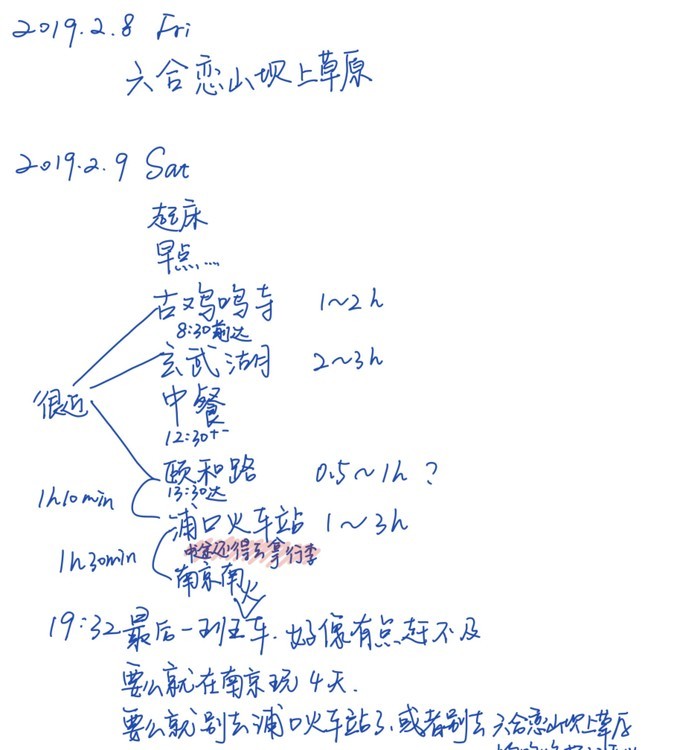 2019.2.8 Fri
六合恋山坝上草原
2019.2.9 Sat
起床
早点...
古鸡鸣寺 1~2h
8:30前达
玄武湖 2~3h
很近
中餐
12:30+-
颐和路 0.5~1h ?
13:30达
1h10min
浦口火车站 1~3h
中途还得去拿行李
1h30min
南京南
19:32最后一班车.好像有点赶不及
要么就在南京玩4天.
要么就别去浦口火车站了,或者别去六合恋山坝上草原